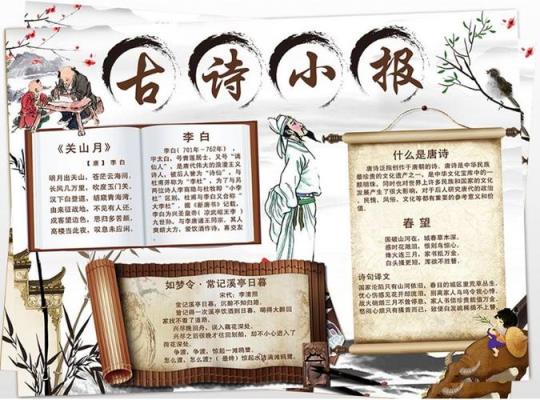 古诗小报
《关山月》
【唐】李白
明月出天山，苍茫云海间。
长风几万里，吹度玉门关。
汉下白登道，胡窥青海湾。
由来征战地，不见有人还。
戍客望边色，思归多苦颜。
高楼当此夜，叹息未应闲。
李白
李白（701年－762年）
字太白，号青莲居士，又号“谪
仙人”，是唐代伟大的浪漫主义
诗人，被后人誉为“诗仙”，与
杜甫并称为“李杜”，为了与另
两位诗人李商隐与杜牧即“小李
杜”区别，杜甫与李白又合称“
大李杜”。据《新唐书》记载，
李白为兴圣皇帝（凉武昭王李
九世孙，与李唐诸王同宗。其人
爽朗大方，爱饮酒作诗，喜交友
什么是唐诗
唐诗泛指创作于唐朝的诗。唐诗是中华民族
最珍贵的文化遗产之一，是中华文化宝库中的一
颗明珠，同时也对世界上许多民族和国家的文化
发展产生了很大影响，对于后人研究唐代的政治
、民情、风俗、文化等都有重要的参考意义和价
值。
春望
国破山河在，城春草木深。
感时花溅泪，恨别鸟惊心。
烽火连三月，家书抵万金。
白头搔更短，浑欲不胜簪。
诗句译文
如梦令·常记溪亭日暮
宋代：李清照
常记溪亭日暮，沉醉不知归路。
曾记得一次溪亭饮酒到日暮，喝得大醉回
家找不着了道路。
兴尽晚回舟，误入藕花深处。
兴尽之后很晚才往回划船，却不小心进入了
荷花深处。
争渡，争渡，惊起一滩鸥鹭。
怎么渡，怎么渡？（最终）惊起水边满滩鸥鹭。